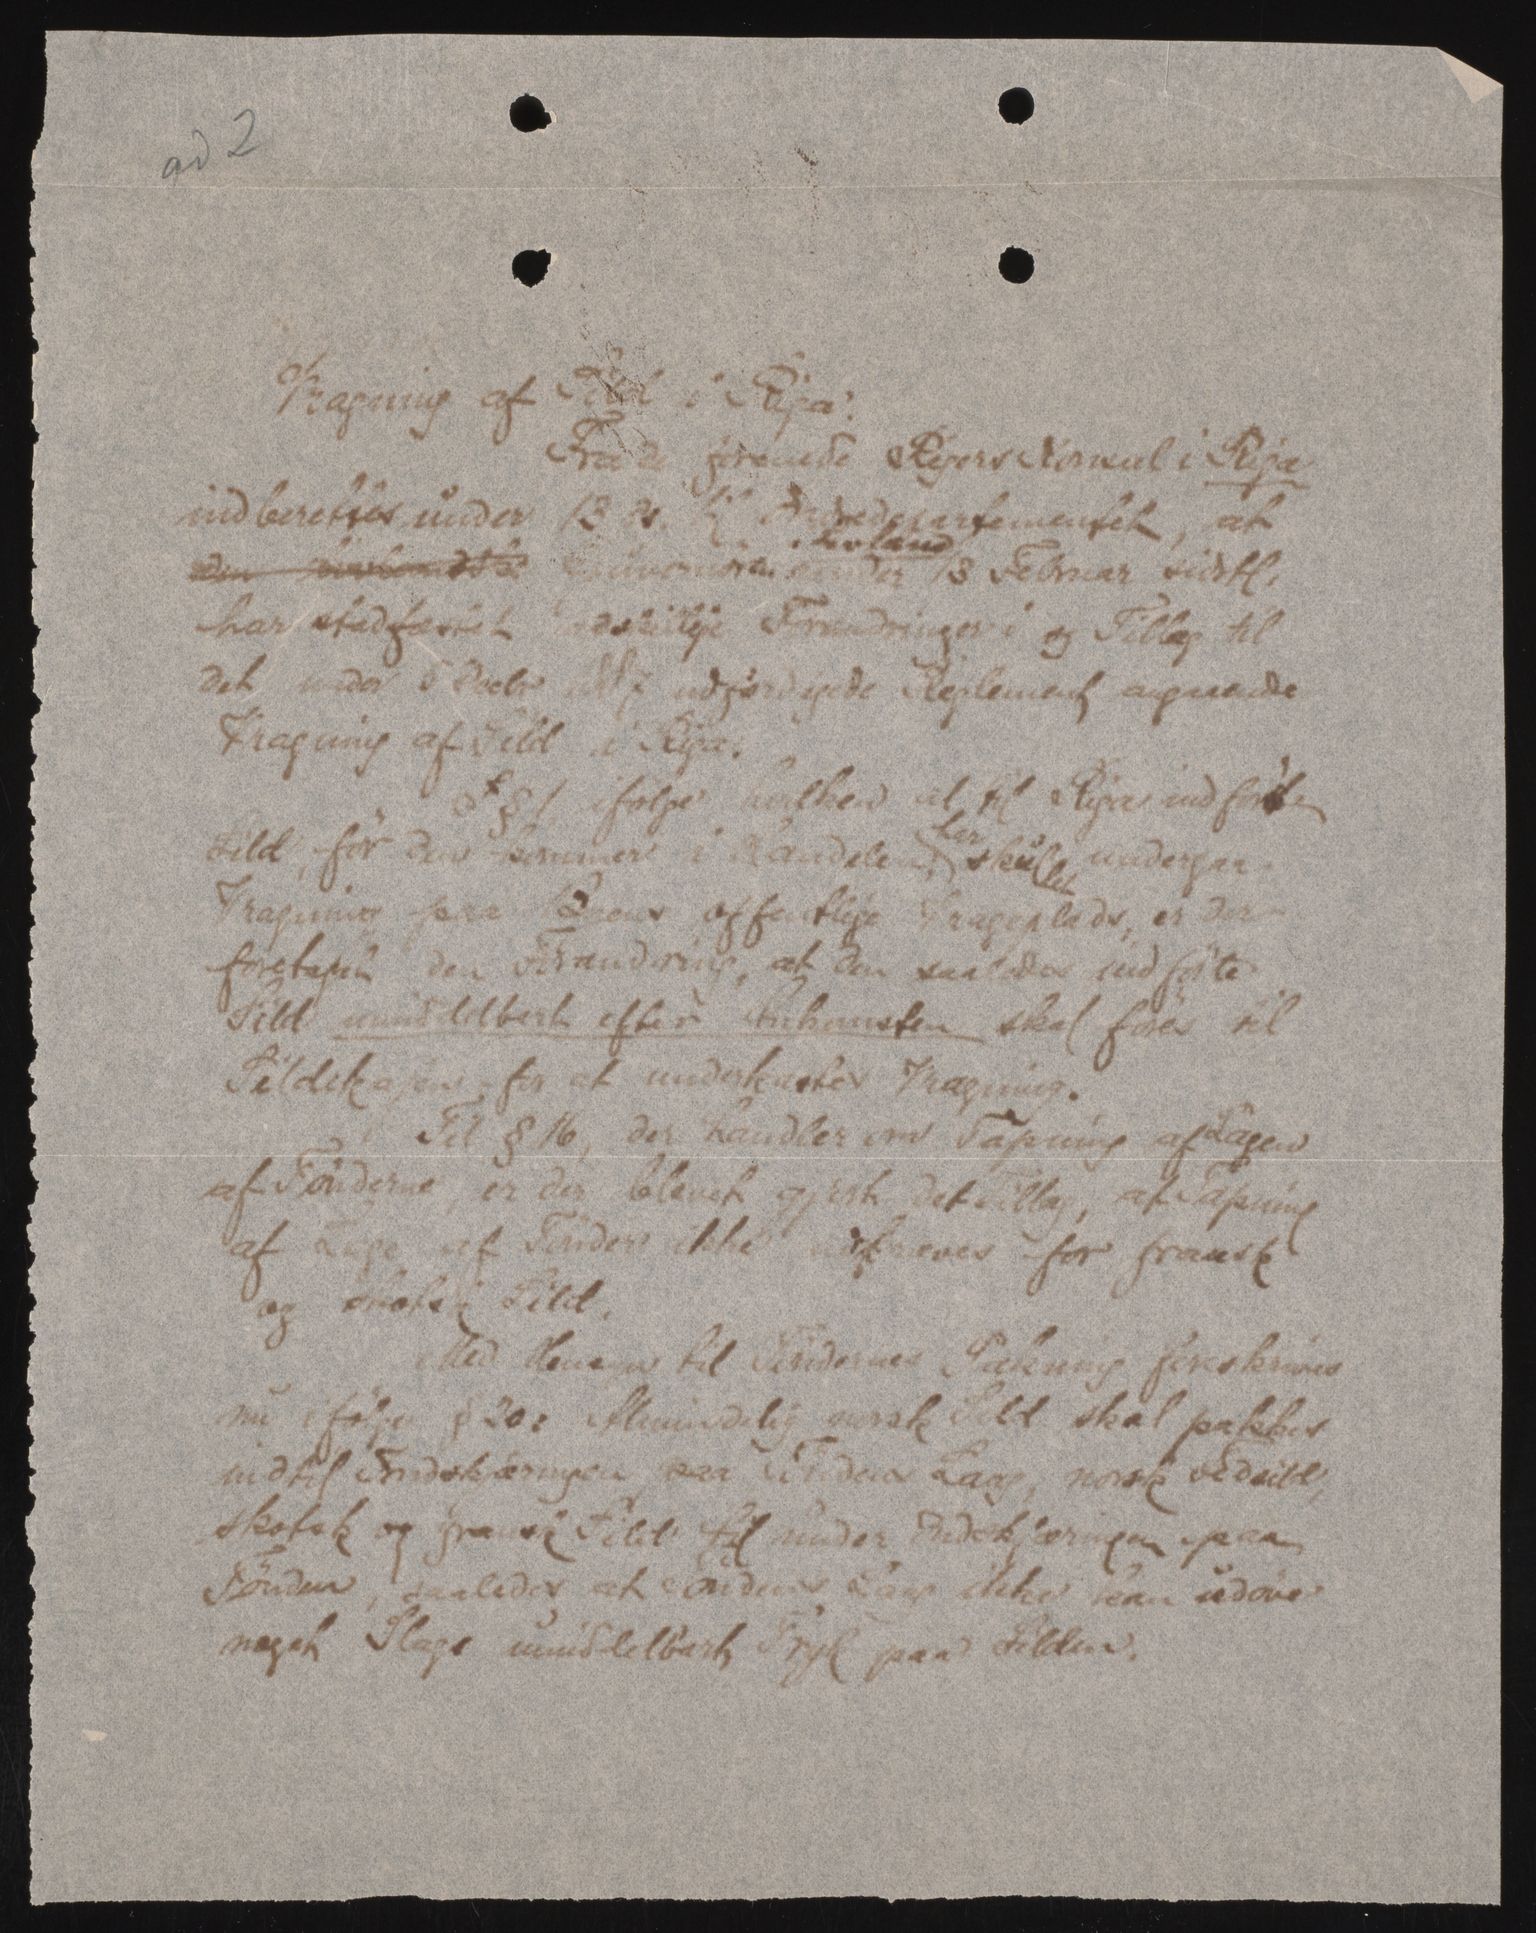 ad 2
Vragning af Sild i Riga.
Fra de forenede Rigers Konsul i Riga
indberettes under 13 ds. til Indredepartementet, at
Livland
den Guvernøren under 18 Februar sidstl.
har stadfæstet adskillige Forandringer i og Tillæg til
det under 5 Decbr udfærdigede Reglement angaaende
Vragning af Sild i Riga.
§ 1, ifølge hvilken al til Riga indført
Sild, før den kommer i Handelen, har skullet undergaa
Vragning paa Byens offentlige Vrageplads, er der
foretaget den Forandring, at den saaledes indførte
Sild umiddelbart efter Ankomsten skal føres til
for at underkastes Vragning.
Til § 16, der handler om Tapning af Lagen
af Tønderne, er der blevet gjort det Tillæg, at Tapning
af Lage af Tønder ikke udkræves for fransk
og skotsk Sild.
Med Hensyn til Tøndernes Pakning foreskrives
nu ifølge § 20: Almindelig norsk Sild skal pakkes
indtil Indskjæringen paa Tøndens Laag, norsk Fedsild,
skotsk og fransk Sild til under Indskjæringen paa
Tønden, saaledes at Tøndens Laag ikke kan udøve
noget Slags umiddelbart Tryk paa Silden.